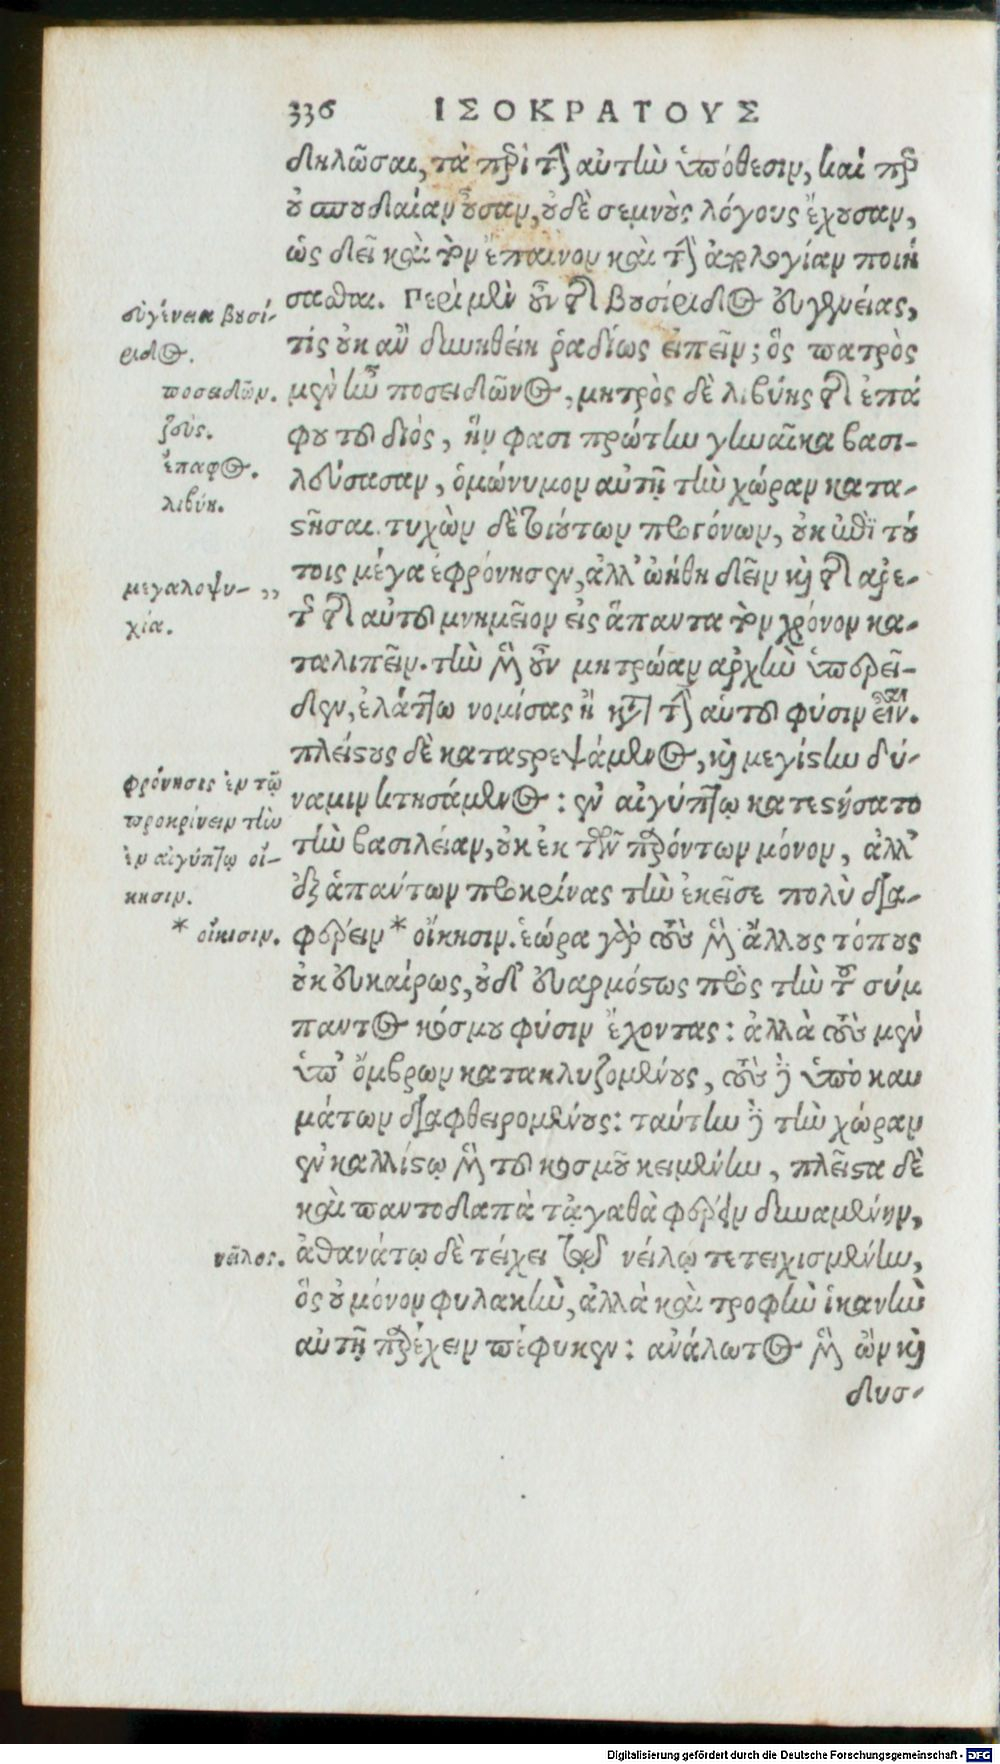 336 ΙΣΟΚΡΑΤΟΥΣ
δηλῶσαι, τὰ περὶ τὴν αὐτὴν ὑπόθεσιν, καὶ περ
οὐ σπουδαίαν οὖσαν, οὐδὲ σεμνοὺς λόγους ἔχουσαν,
ὡς δεῖ καὶ τὸν ἔπαινον καὶ τὴν ἀπολογίαν ποιή
σασθαι. Περὶ μὲν οὖν τῆς βουσίριδος εὐγενείας,
τίς οὐκ ἂν δυνηθείη ῥαδίως εἰπεῖν; ὃς πατρὸς
μὲν ἦν ποσειδῶνος, μητρὸς δὲ λιβύης τῆς ἐπά
φου τοῦ διός, ἥν φασι πρώτην γυναῖκα βασι-
λεύσασαν, ὁμώνυμον αὐτῇ τὴν χώραν κατα-
στῆσαι. τυχὼν δὲ τοιούτων προγόνων, οὐκ ἐπὶ τού
τοις μέγα ἐφρόνησεν, ἀλλ' ᾠήθη δεῖν καὶ τῆς ἀρε-
τῆς τῆς αὑτοῦ μνημεῖον εἰς ἅπαντα τὸν χρόνον κα-
ταλιπεῖν. τὴν μὲν οὖν μητρῴαν ἀρχὴν ὑπερεῖ-
δεν, ἐλάττω νομίσας ἢ κατὰ τὴν αὑτοῦ φύσιν εἶναι.
πλείστους δὲ καταστρεψάμενος, καὶ μεγίστην δύ-
ναμιν κτησάμενος: ἐν αἰγύπτῳ κατεστήσατο
τὴν βασιλείαν, οὐκ ἐκ τῶν παρόντων μόνον, ἀλλ'
ἐξ ἁπάντων προκρίνας τὴν ἐκεῖσε πολὺ δια-
φέρειν * οἴκησιν. ἑώρα γὰρ τοὺς μὲν ἄλλους τόπους
οὐκ εὐκαίρως, οὐδ' εὐαρμόστως πρὸς τὴν τοῦ σύμ
παντος κόσμου φύσιν ἔχοντας: ἀλλὰ τοὺς μὲν
ὑπ' ὄμβρων κατακλυζομένους, τοὺς δὲ ὑπὸ καυ
μάτων διαφθειρομένους: ταύτην δὲ τὴν χώραν
ἐν καλλίστῳ μὲν τοῦ κοσμοῦ κειμένην, πλεῖστα δὲ
καὶ παντοδαπὰ τἀγαθὰ φέρειν δυναμένην,
ἀθανάτῳ δὲ τείχει τῷ νείλῳ τετειχισμένην,
ὃς οὐ μόνον φυλακὴν, ἀλλὰ καὶ τροφὴν ἱκανὴν
αὐτῇ παρέχειν πέφυκεν: ἀνάλωτος μὲν ὢν καὶ
δυσ-
εὐγένεια βουσί-
ριδος.
ποσειδῶν.
ζεύς.
ἔπαφος.
λιβύη.
μεγαλοψυ- ,,
χία.
φρόνησις ἐν τῷ
προκρίνειν τὴν
ἐν αἰγύπτῳ οἴ-
κησιν.
* οἴκισιν.
νεῖλος.
Digitalisierung gefördert durch die Deutsche Forschungsgemeinschaft - DFG